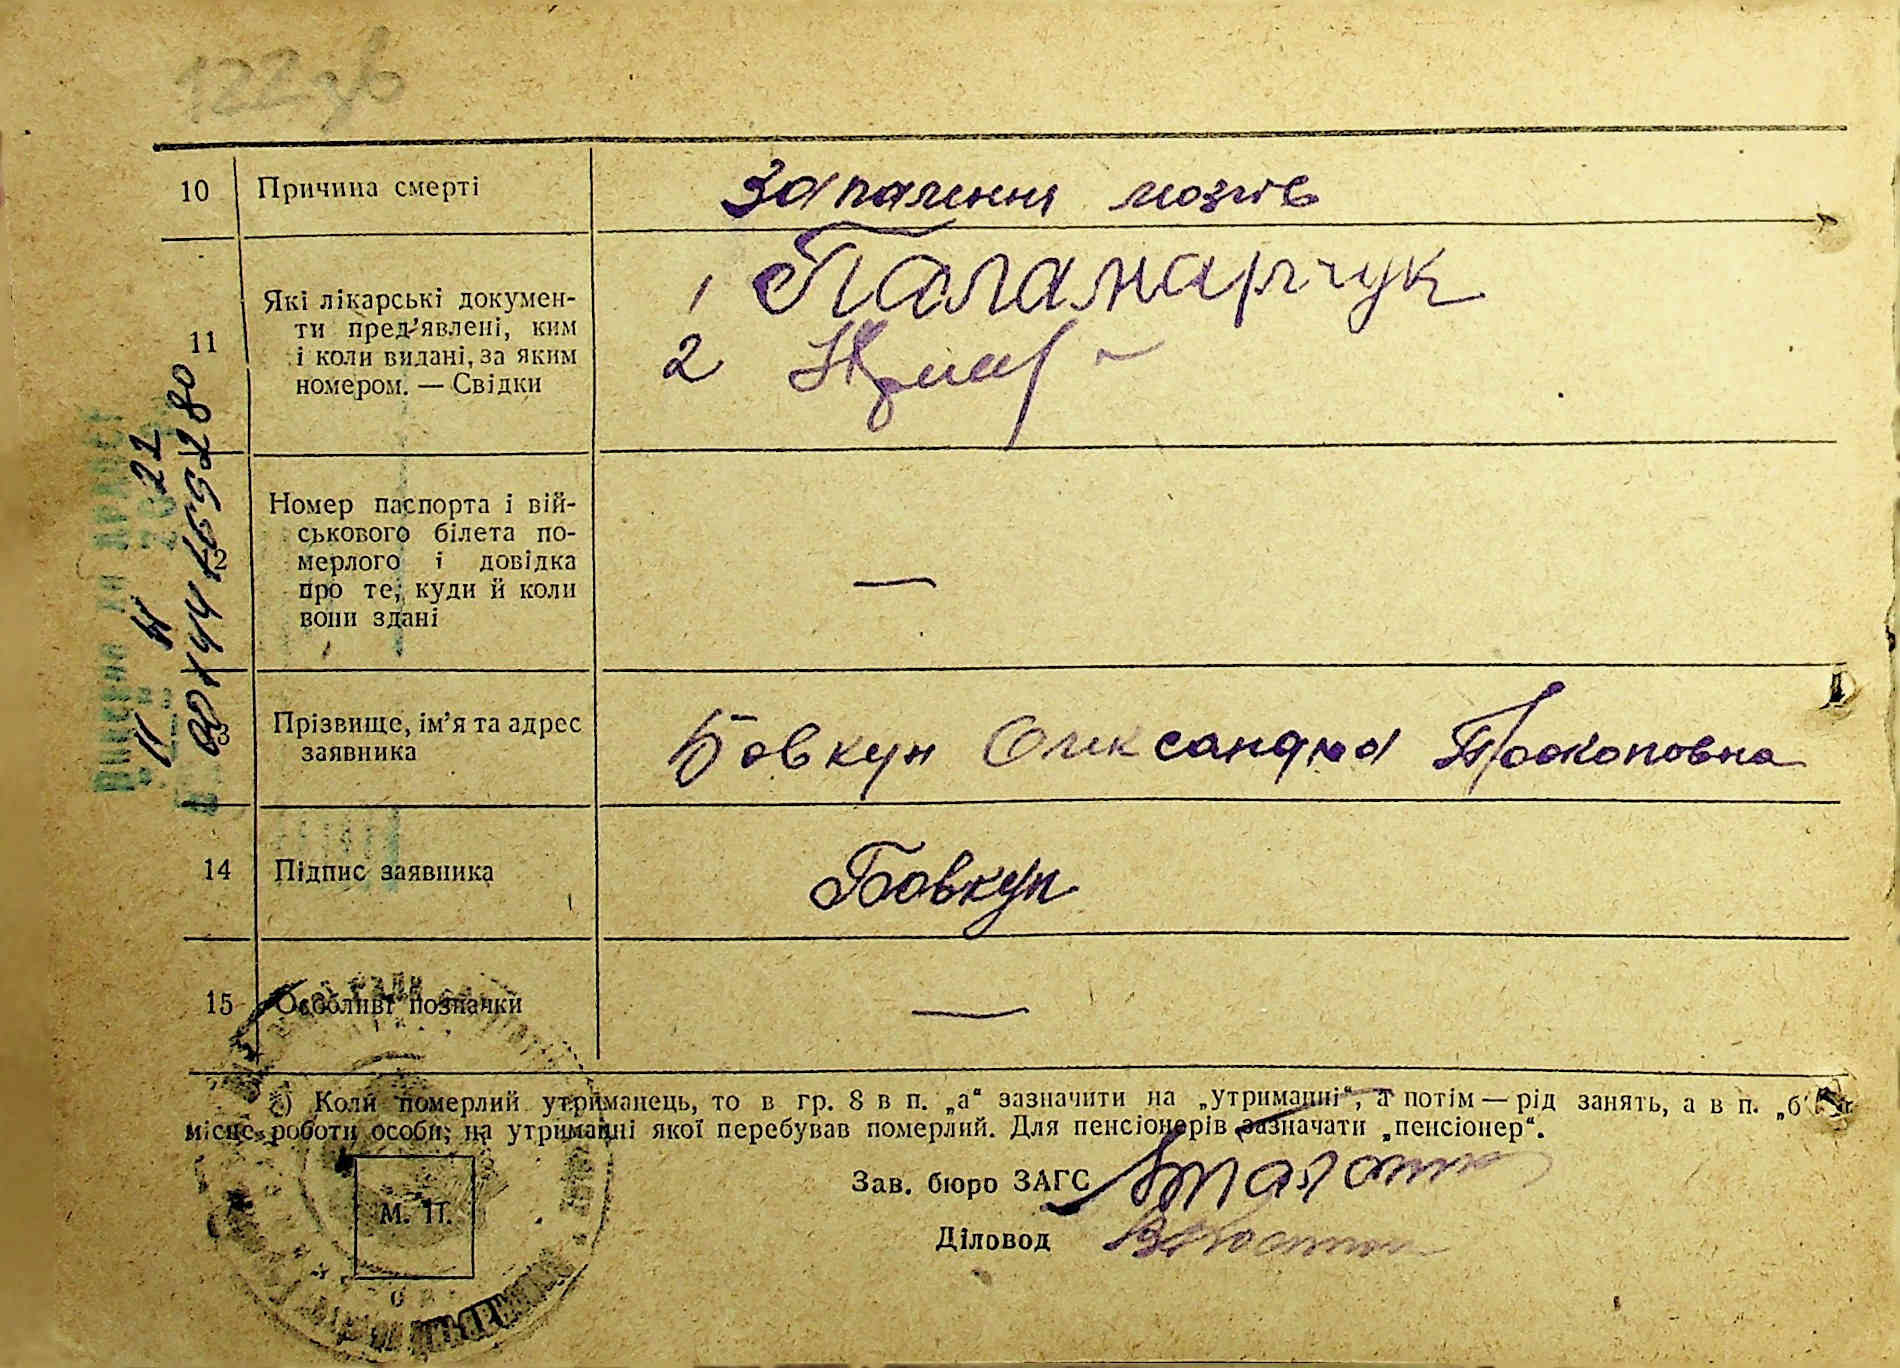 122 зв
10 Причина смерті Запаленні мозгів
11 Які лікарські докумен-
ти пред'явлені, ким
і коли видані, за яким
номером. — Свідки
1 Паламарчук
2
Номер паспорта і вій-
ськового білета по-
мерлого і довідка
про те, куди й коли
вони здані
—
Прізвище, ім'я та адрес
заявника
Бовкун Олександра Прокоповна
14 Підпис заявника Бовкун
15 Особливі позначки —
*) Коли померлий утриманець, то в гр. 8 в п. „а“ зазначити на „утриманні“, а потім — рід занять, а в п. „б“
місце роботи особи, на утриманні якої перебував померлий. Для пенсіонерів зазначати „пенсіонер“.
Зав. бюро ЗАГС
М. П.
Діловод